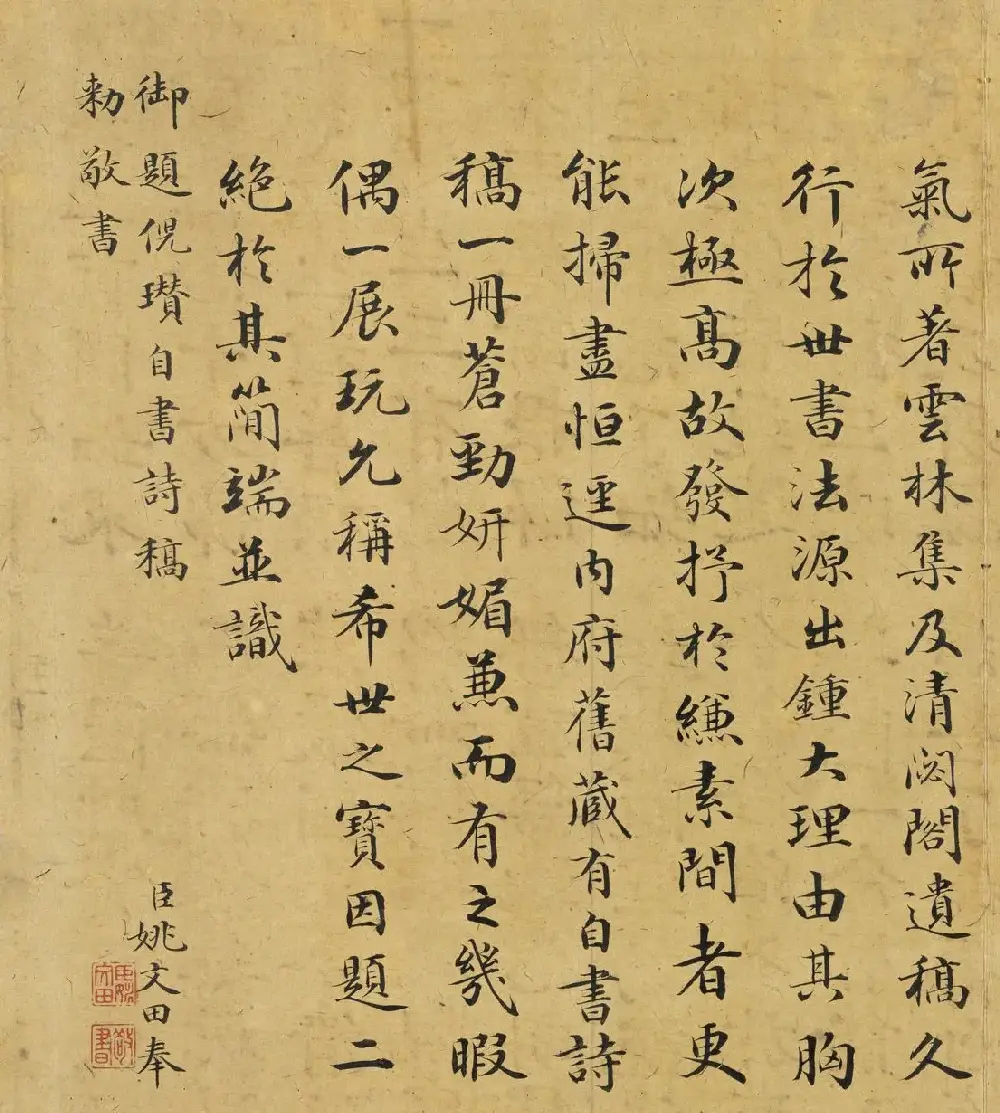 氣所著雲林集及清閟閣遺稿久
行於世書法源出鍾大理由其胸
次極高故發抒於縑素間者更
能掃盡恒逕內府舊藏有自書詩
稿一冊蒼勁妍媚兼而有之幾暇
偶一展玩允稱希世之寶因題二
絕於其簡端並識
御題倪瓚自書詩稿
臣姚文田奉
敕敬書
臣姚文田
敬書